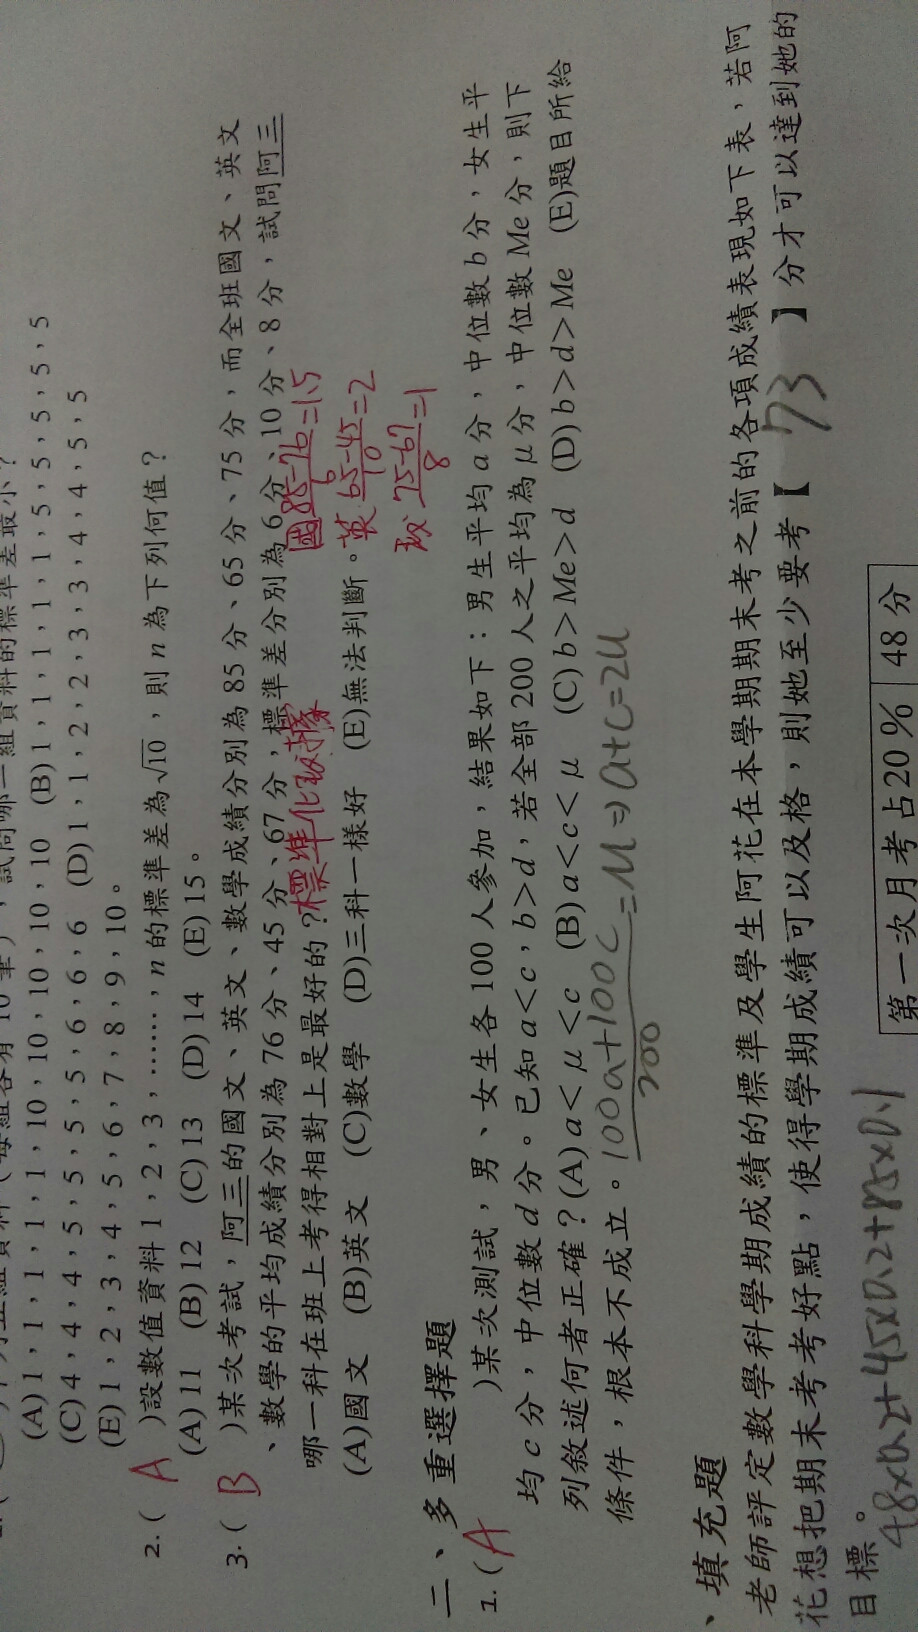 組資料的標準差最小?
(A) 1,1,1,1,1,10,10,10,10,10 (B) 1,1,1,1,1,5,5,5,5,5
(C) 4,4,4,5,5,5,5,6,6,6 (D) 1,1,2,2,3,3,4,4,5,5
(E) 1,2,3,4,5,6,7,8,9,10。
2.( A )設數值資料1,2,3,……,n的標準差為√10,則n為下列何值?
(A) 11 (B) 12 (C) 13 (D) 14 (E) 15。
3.( B )某次考試,阿三的國文、英文、數學成績分別為85分、65分、75分,而全班國文、英文
、數學的平均成績分別為76分、45分、67分,標準差分別為6分、10分、8分,試問阿三
哪一科在班上考得相對上是最好的?標準化數據 國 85-76/6=1.5
(A)國文 (B)英文 (C)數學 (D)三科一樣好 (E)無法判斷。英 65-45/10=2
數 75-67/8=1
二、多重選擇題
1.( A )某次測試,男、女生各100人參加,結果如下:男生平均a分,中位數b分,女生平
均c分,中位數d分。已知a<c,b>d,若全部200人之平均為μ分,中位數Me分,則下
列敘述何者正確?(A) a<μ<c (B) a<c<μ (C) b>Me>d (D) b>d>Me (E)題目所給
條件,根本不成立。100a+100c/200=M⇒a+c=2u
、填充題
老師評定數學科學期成績的標準及學生阿花在本學期期末考之前的各項成績表現如下表,若阿
花想把期末考考好點,使得學期成績可以及格,則她至少要考【 73 】分才可以達到她的
目標。
48×0.2+45×0.2+85×0.1
第一次月考占20% 48分